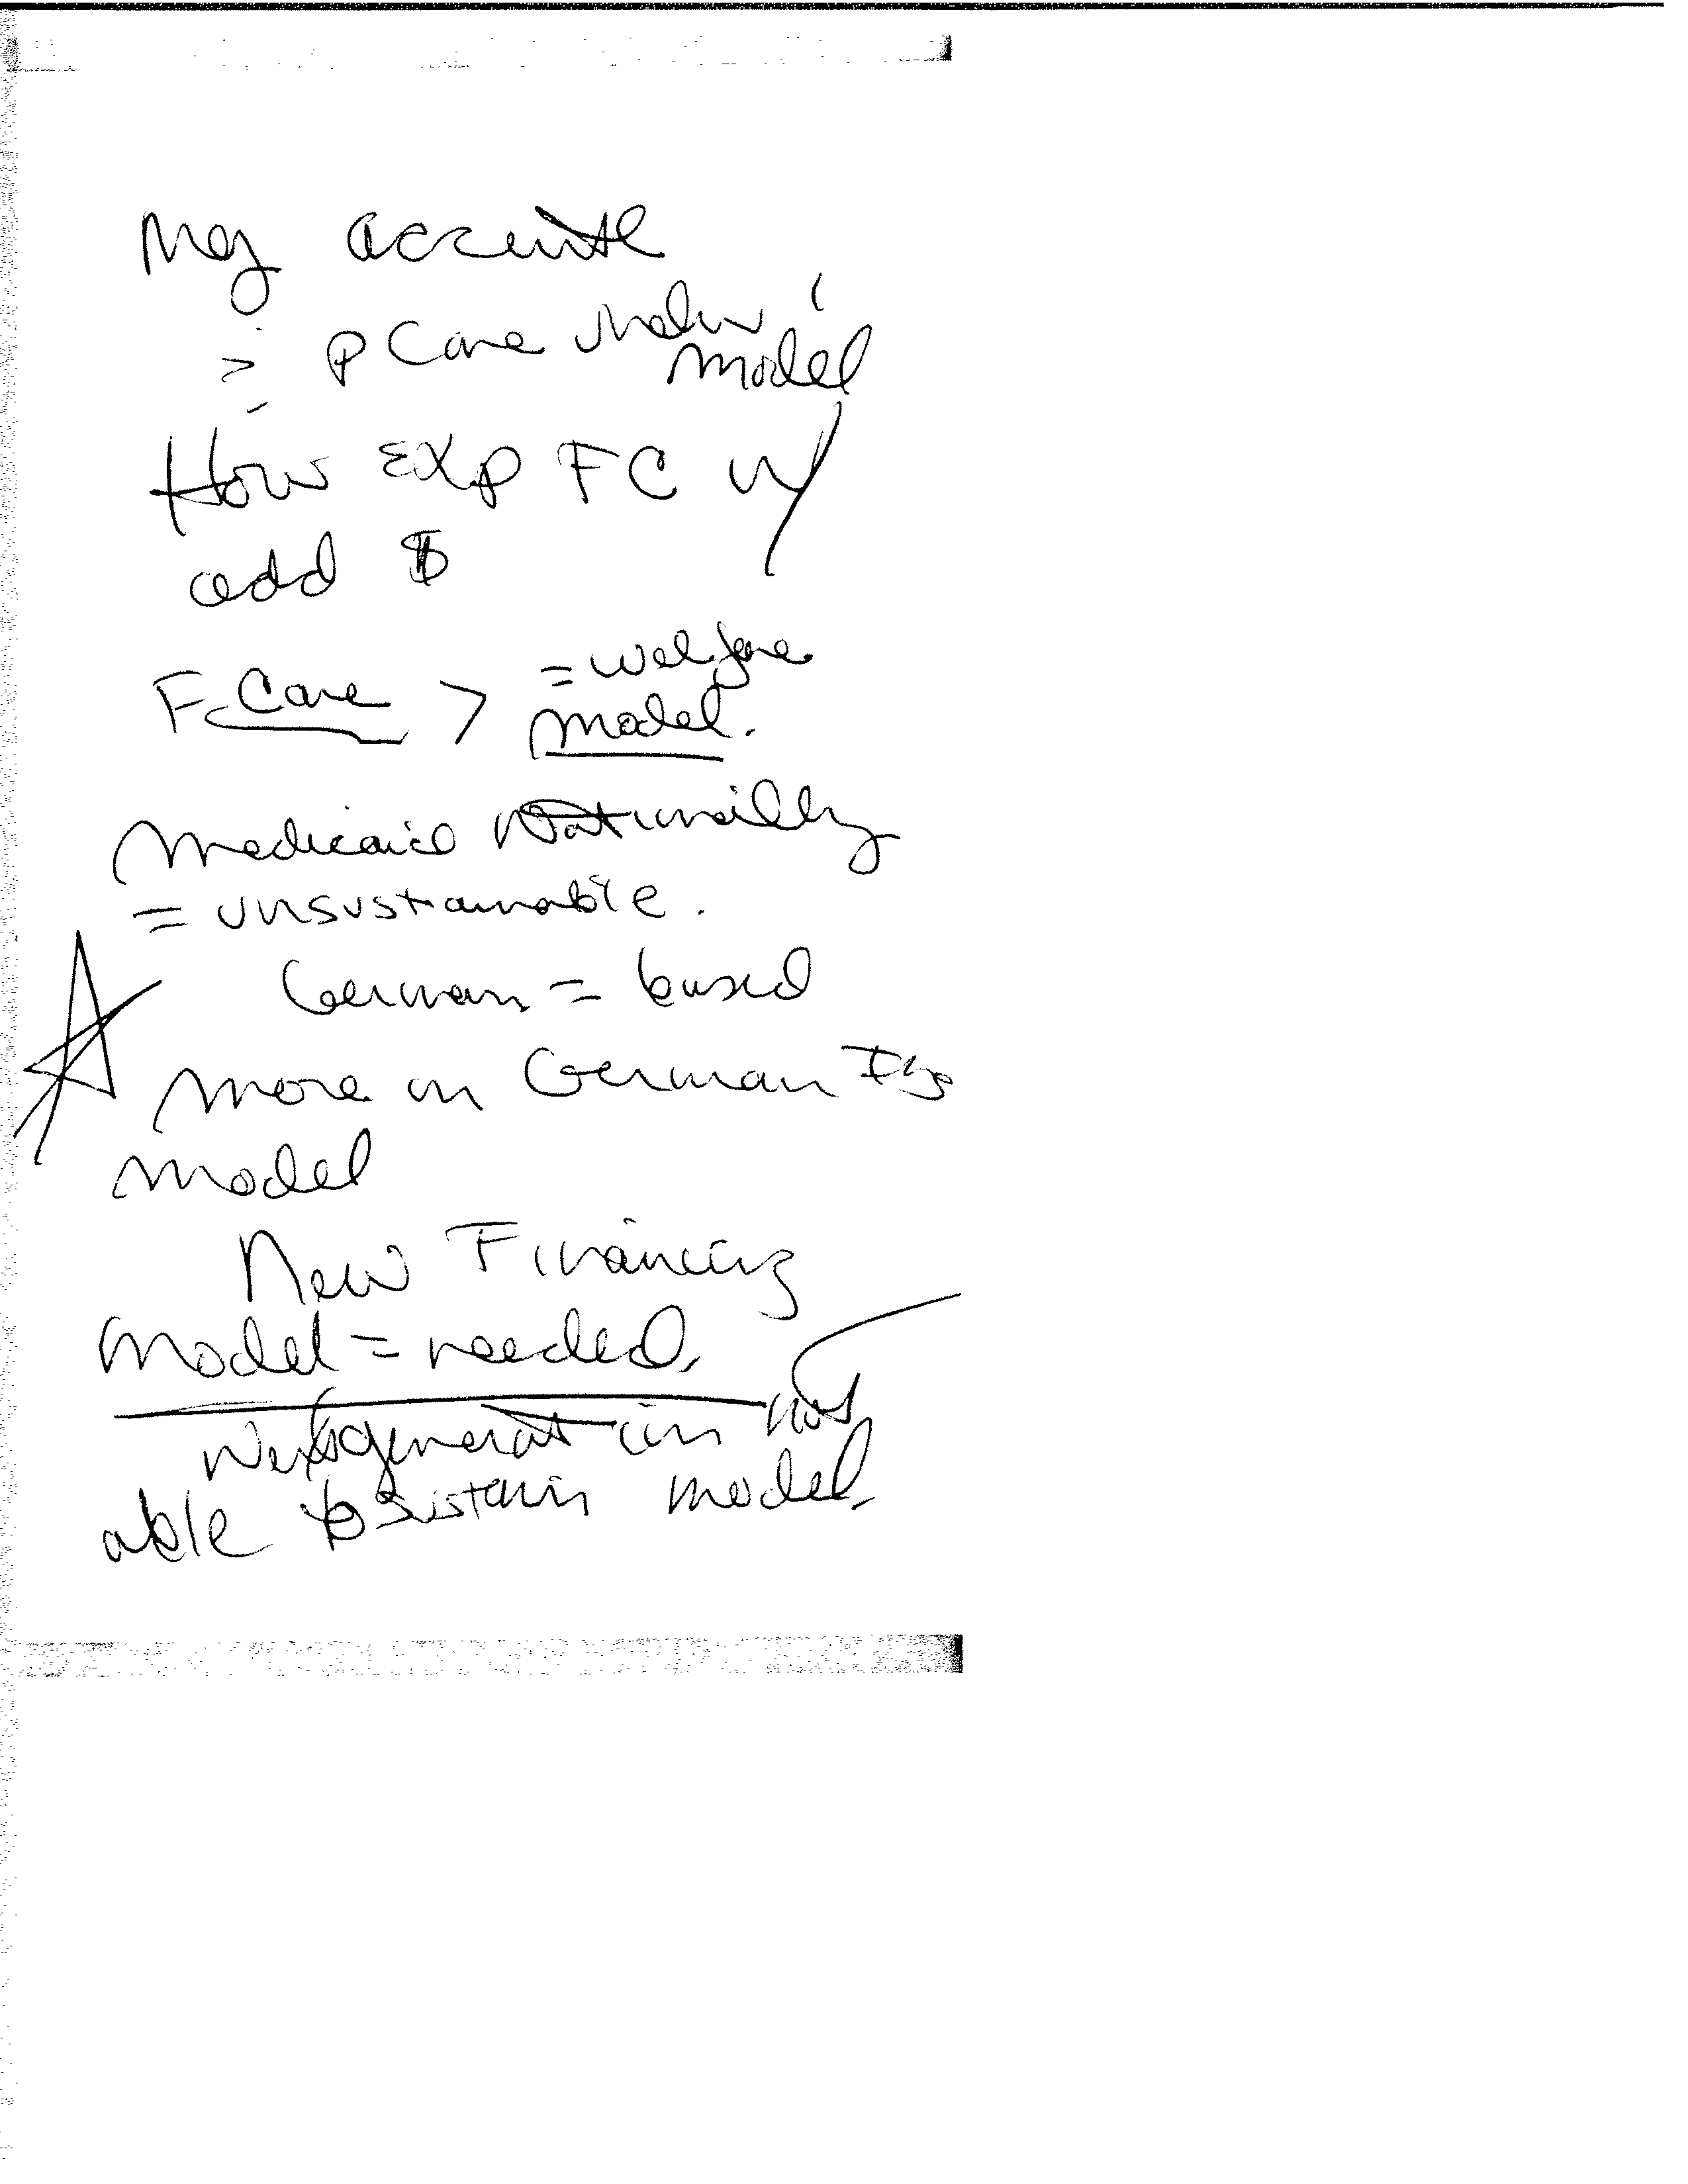 model
How Exp FC w/
add $
F. Care > = welfare
model.
Medicaid Nationally
= unsustainable.
German = based
more on German Ins
model
New Financing
model = needed.
Next generation not
able to sustain model.